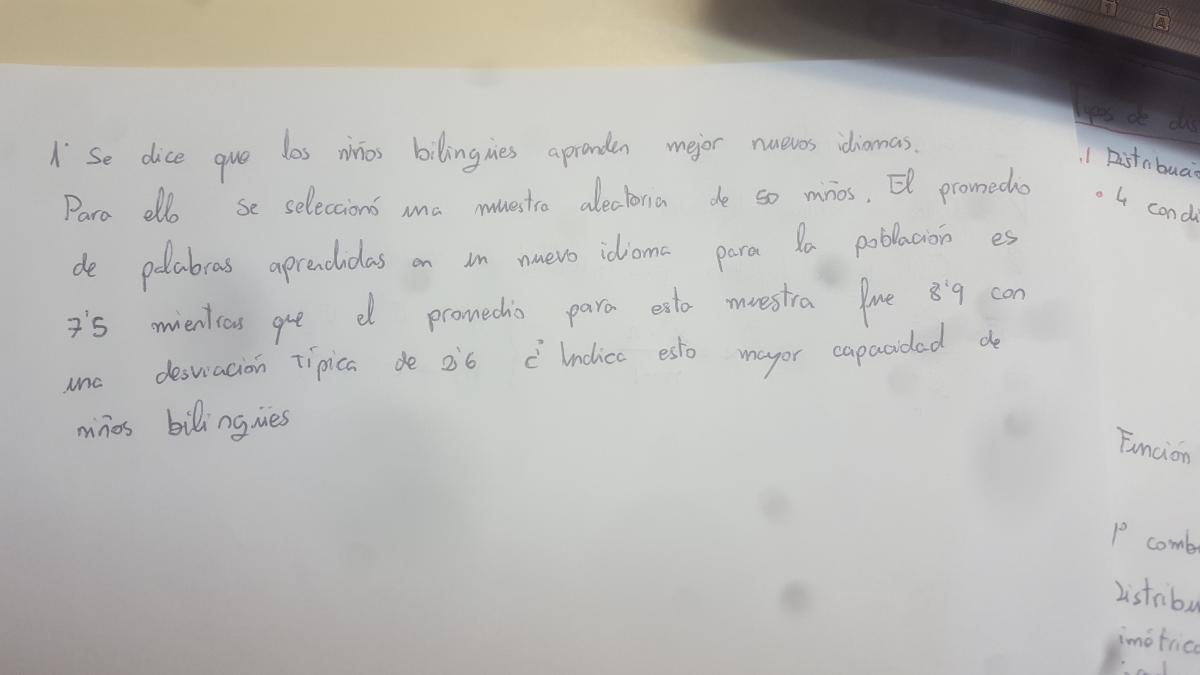 1. Se dice que los niños bilingües aprenden mejor nuevos idiomas.
Para ello se seleccionó una muestra aleatoria de 50 niños. El promedio
de palabras aprendidas en un nuevo idioma para la población es
7'5 mientras que el promedio para esta muestra fue 8'9 con
una desviación típica de 2'6 ¿ Indica esto mayor capacidad de
niños bilingües
Tipos de
.1 Distribució
• 4 condi
Función
1º comb
Distribu
imétrica